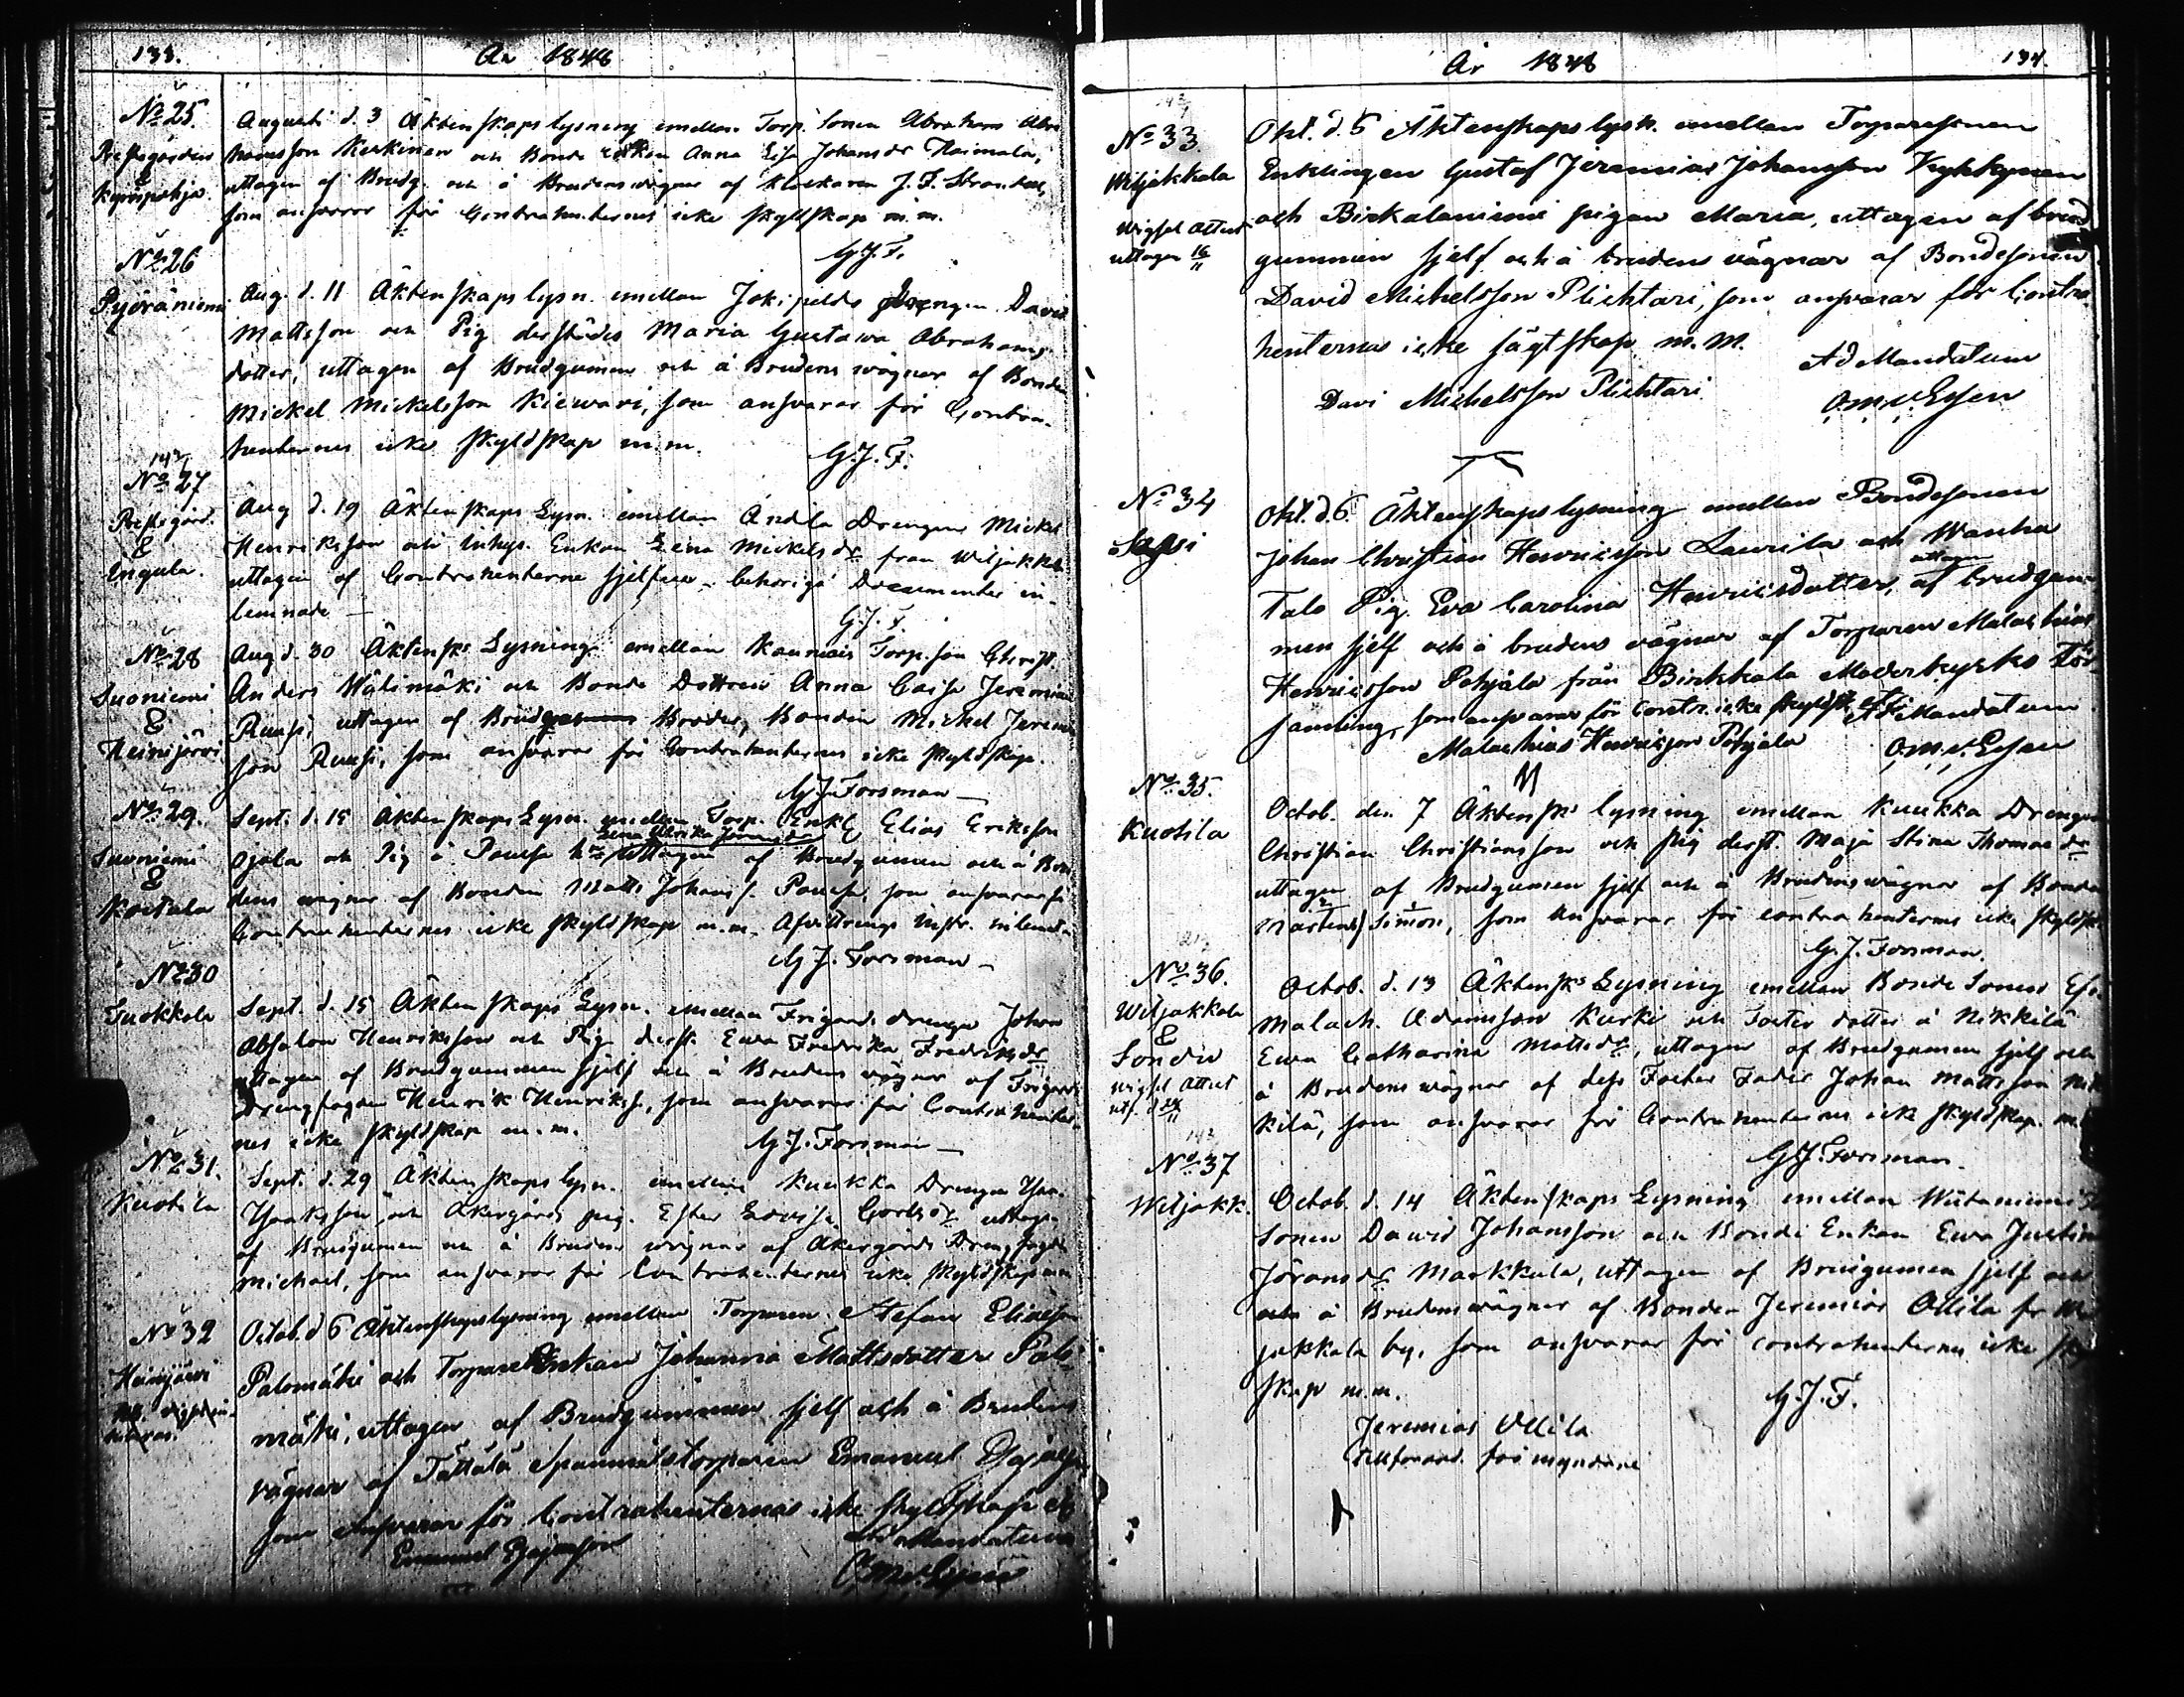 133.
År 1848
No 25.
Prestgården
&
Kyröspohja
Augusti d. 3 Äktenskaps lysning emellan Torp. Sonen Abraham Abra
hamsson Keskinen och Bonde Anna Lisa Johansdr Haimala,
uttagen af Brudg. och å Brudens wägnar af Klockaren J. F.
som ansvarar för Contrahenternes icke skyldskap m.m.
G.J.F.
No 26
Pyöräniemi
Aug. d. 11 Äktenskaps lysn. emellan Jokipelds Drengen David
Mattsson och Pig. derstädes Maria Gustawa Abrahams
dotter, uttagen af Brudgumen och å Brudens wägnar af Bonden
Mickel Mickelsson Kiewari, som ansvarar för Contra-
henternes icke skyldskap m.m.
G.J.F.
No 27
Prestgård.
&
Ingula.
Aug d. 19 Äktenskaps Lysn. emellan Andla Drengen Mickel
Henriksson och Inhys. Enkan Lena Mickelsdr från Wiljakkala
uttagen af Contrahenterne sjelfwe - behöriga Documenter in-
lemnade —
G.J.F.
No 28
Suoniemi
&
Heinijärvi
Aug d. 30 Äktensks Lysning emellan Kauniais Torp. son Christ.
Anders Wälimäki och Bonde Dottren Anna Caisa Jeremias
Ruusi, uttagen af Brudgumens Broder, Bonden Mickel Jerem
son Ruusi, som ansvarar för Contrahenternes icke skyldskap.
G.J. Forsman —
No 29.
Suoniemi
&
Kostula
Sept. d. 15 Äktenskaps Lysn. emellan Torp. Enkl Elias Eriksson
Ojala och Pig å Pousa uttagen af Brudgumen och å Bru
dens wägnar af Bonden Matts Johanss. Pousa, som ansvarar för
Contrahenternes icke skyldskap m.m.
G.J. Forsman —
No 30
Tuokkola
Sept. d. 15 Äktenskaps Lysn. emellan Frigårds drengen Johan
Absalon Henriksson och Pig derst. Ewa Fredrika Fredriksdr
uttagen af Brudgummen sjelf och å Brudens wägnar af Frigårds
Drengfogden Henrik Henrikss., som ansvarar för Contrahenter-
nes icke skyldskap m.m.
G.J. Forsman —
No 31.
Kuotila
Sept. d. 29 Äktenskaps lysn. emellan Kuukka Drengen Isaac
Isaksson, och Åkergårds pig. Ester Lovisa uttagen
af Brudgumen och å Brudens wägnar af Åkergårds Drengfogde
Michael, som ansvarar för Contrahenternes icke skyldskap m.m
No 32
Heinijärvi
Octob. d 5 Äktenskapslysning emellan Torparen Stefan Eliasson
Palomäki och Torpare Enkan Johanna Mattsdotter Palo
mäki, uttagen af Brudgummen sjelf och å Brudens
vägnar af Tättälä Spannmålstorparen Emanuel
som ansvarar för Contrahenternas icke skyldskap
Ad Mandatum
Emanuel
134.
År 1848
No 33
Wiljakkala
Wigsel Attest
uttagen 16/11
Okt. d. 5 Äktenskapslysn. emellan Torparesonen
Enklingen Gustaf Jeremias Johansson
och Birkalaniemi pigan Maria, uttagen af brud
gummen sjelf och å brudens vägnar af Bondesonen
David Michelsson Plihtari, som ansvarar för Contra
henternas icke m.m.
Ad Mandatum
Davi Michelsson Plihtari
O.M.v. Essen
No 34
Sasi
Okt. d. 6. Äktenskapslysning emellan Bondesonen
Johan Christian Henricsson Laurila och Wanha
Talo Pig. Eva Carolina Henricsdotter, uttagen af brudgum-
men sjelf och å brudens vägnar af Torparen Malachias
Henricsson Pohjala från Birkkala Moderkyrko För
samling, som ansvarar för Contr. icke
Ad Mandatum
Malachias Henricsson Pohjala
O.M.v. Essen
No 35.
Kuotila
Octob. den 7 Äktensks lysning emellan Kuukka Drengen
Christian Christiansson och pig derst. Maja Stina Thomasdr
uttagen af Brudgumen sjelf och å Brudens wägnar af Bonden
Mårtens Simon, som ansvarar för contrahenternes icke skyldsk.
G.J. Forsman.
No 36.
Wiljakkala
&
Sondu
Wigsel Attest
utf. d 24/11
Octob. d. 13 Äktensks Lysning emellan Bonde Sonen Efr.
Malach. Adamsson Kurki och Foster dotter å Nikkilä
Ewa Catharina Mattsdr, uttagen af Brudgumen sjelf och
å Brudens wägnar af dess Foster Fader Johan Mattsson Nik
kilä, som ansvarar för Contrahenternes icke skyldskap. m.
G.J. Forsman.
No 37
Wiljakk.
Octob. d. 14 Äktenskaps Lysning emellan Wiitaniemi
Sonen Dawid Johansson och Bonde Enkan Ewa Justina
Göransdr Markkula, uttagen af Brudgumen sjelf och
och å Brudens wägnar af Bonden Jeremias Ollila fr Wil
jakkala by, som ansvarar för contrahenternes icke skyld
skap m.m.
G.J.F.
Jeremias Ollila